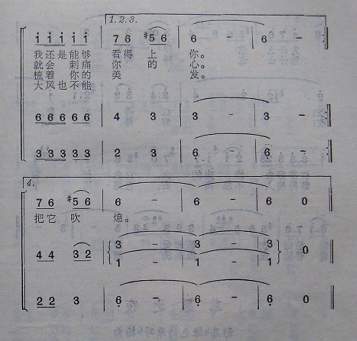 1.2.3.
i i i i i | 7 6 #5 6 | 6 - | 6 -
我还是能够 看得上 你。
就会刺痛 你的 心。
梳着你的 美 发。
大风也不能
6 6 6 6 6 | 4 3 | 3 - | 3 -
3 3 3 3 3 | 2 3 | 6 - | 6 -
4.
7 6 #5 6 | 6 - | 6 - | 6 0
把它 吹 熄。
4 4 3 2 | 3 - | 3 - | 3 0
1 - | 1 - | 1
2 2 3 | 6 - | 6 - | 6 0